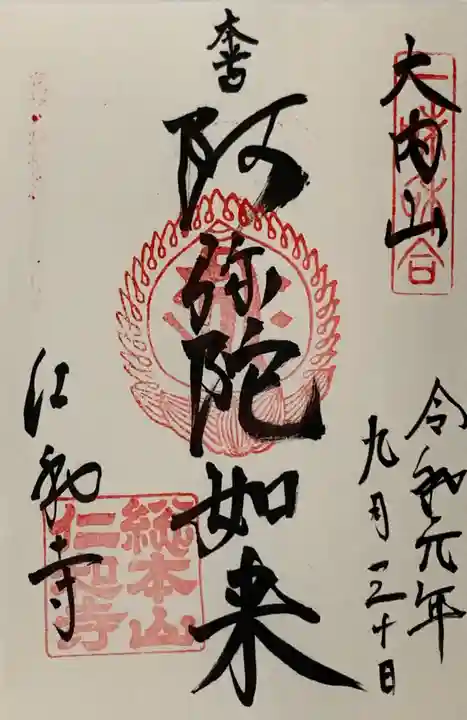 大内山
令和元年
九月三十日
本尊
阿弥陀如来
仁和寺
総本山
仁和寺